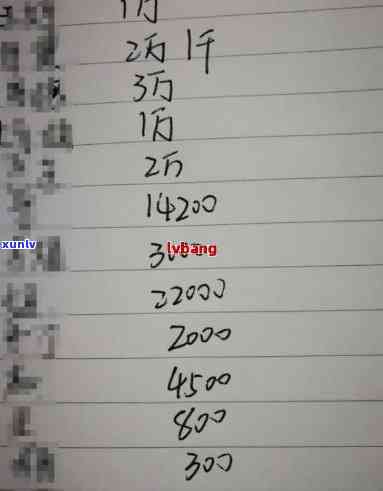 1万
2万1仟
3万
1万
2万
14200
xunlv lvbang
22000
2000
4500
800
300